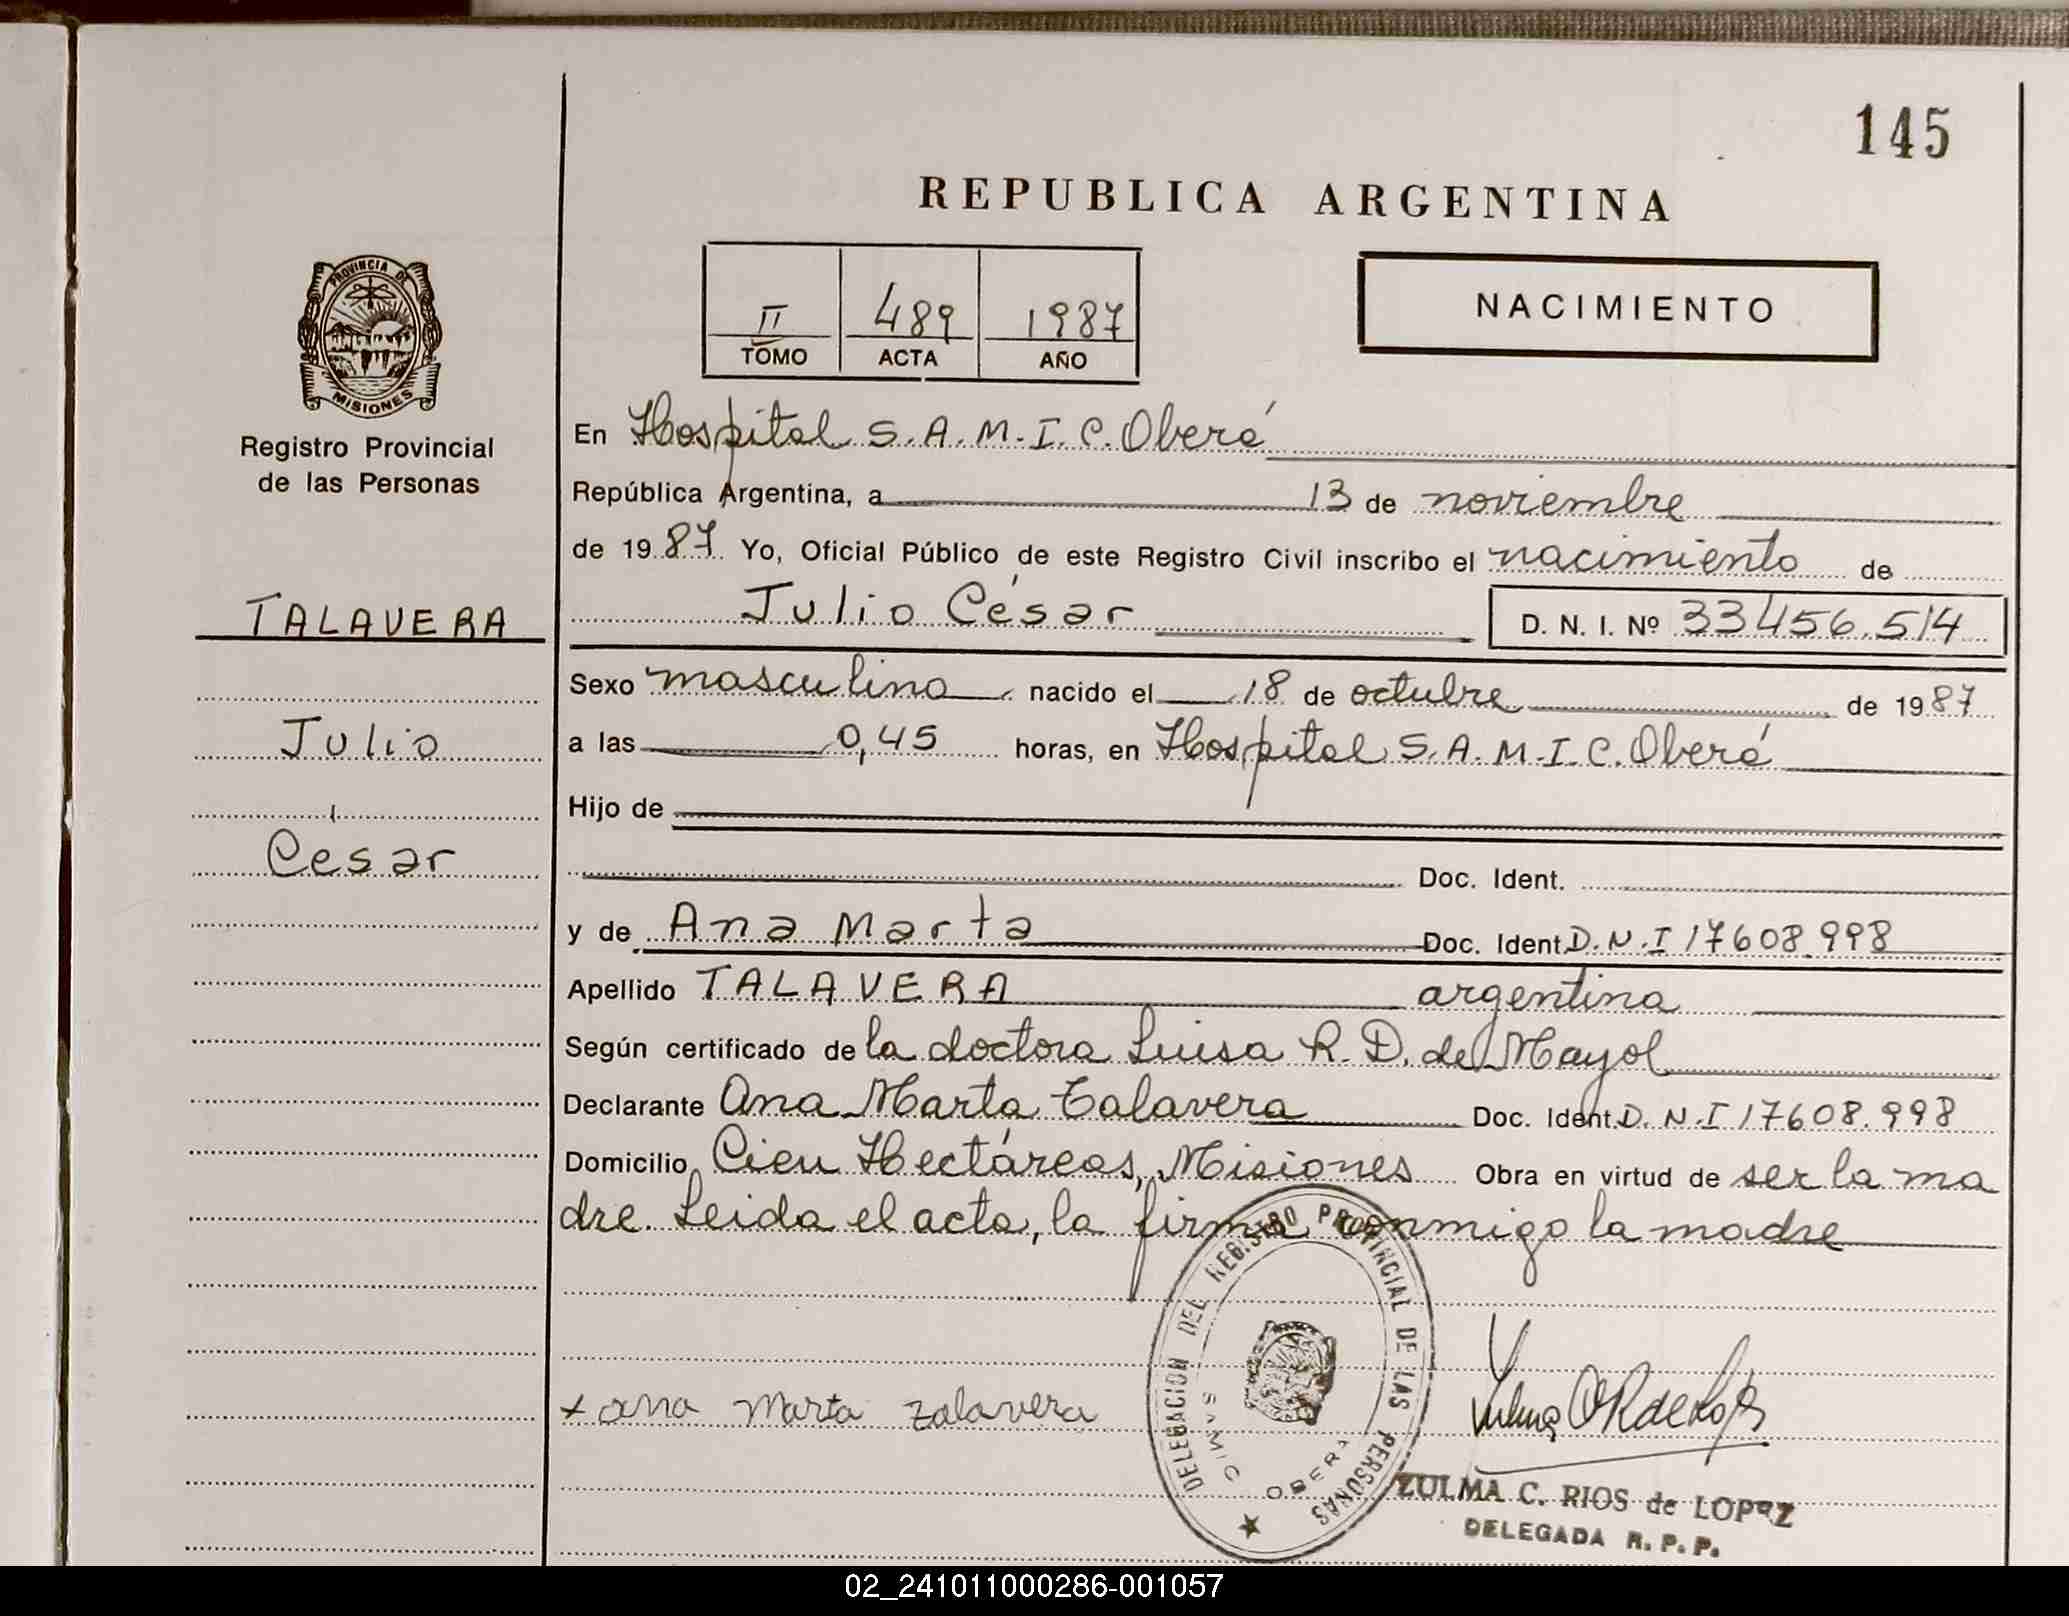 145
REPUBLICA ARGENTINA
II 489 1987
TOMO ACTA AÑO
NACIMIENTO
PROVINCIA DE
MISIONES
Registro Provincial
de las Personas
TALAVERA
Julio
César
En Hospital S.A.M.I.C. Oberá
República Argentina, a 13 de noviembre
de 1987 Yo, Oficial Público de este Registro Civil inscribo el nacimiento de
Julio César D. N. I. Nº 33456.514
Sexo masculino nacido el 18 de octubre de 1987
a las 0,45 horas, en Hospital S.A.M.I.C. Oberá
Hijo de
Doc. Ident.
y de Ana Marta Doc. Ident. D.N.I 17608.998
Apellido TALAVERA argentina
Según certificado de la doctora Luisa R. D. de Mayol
Declarante Ana Marta Talavera Doc. Ident. D.N.I 17608.998
Domicilio Cien Hectáreas, Misiones Obra en virtud de ser la ma
dre. Leida el acta, la firma conmigo la madre
+ ana Marta Zalavera
DELEGACION DEL REGISTRO PROVINCIAL DE LAS PERSONAS
SAMIC OBERA
ZULMA C. RIOS de LOPEZ
DELEGADA R. P. P.
02_241011000286-001057